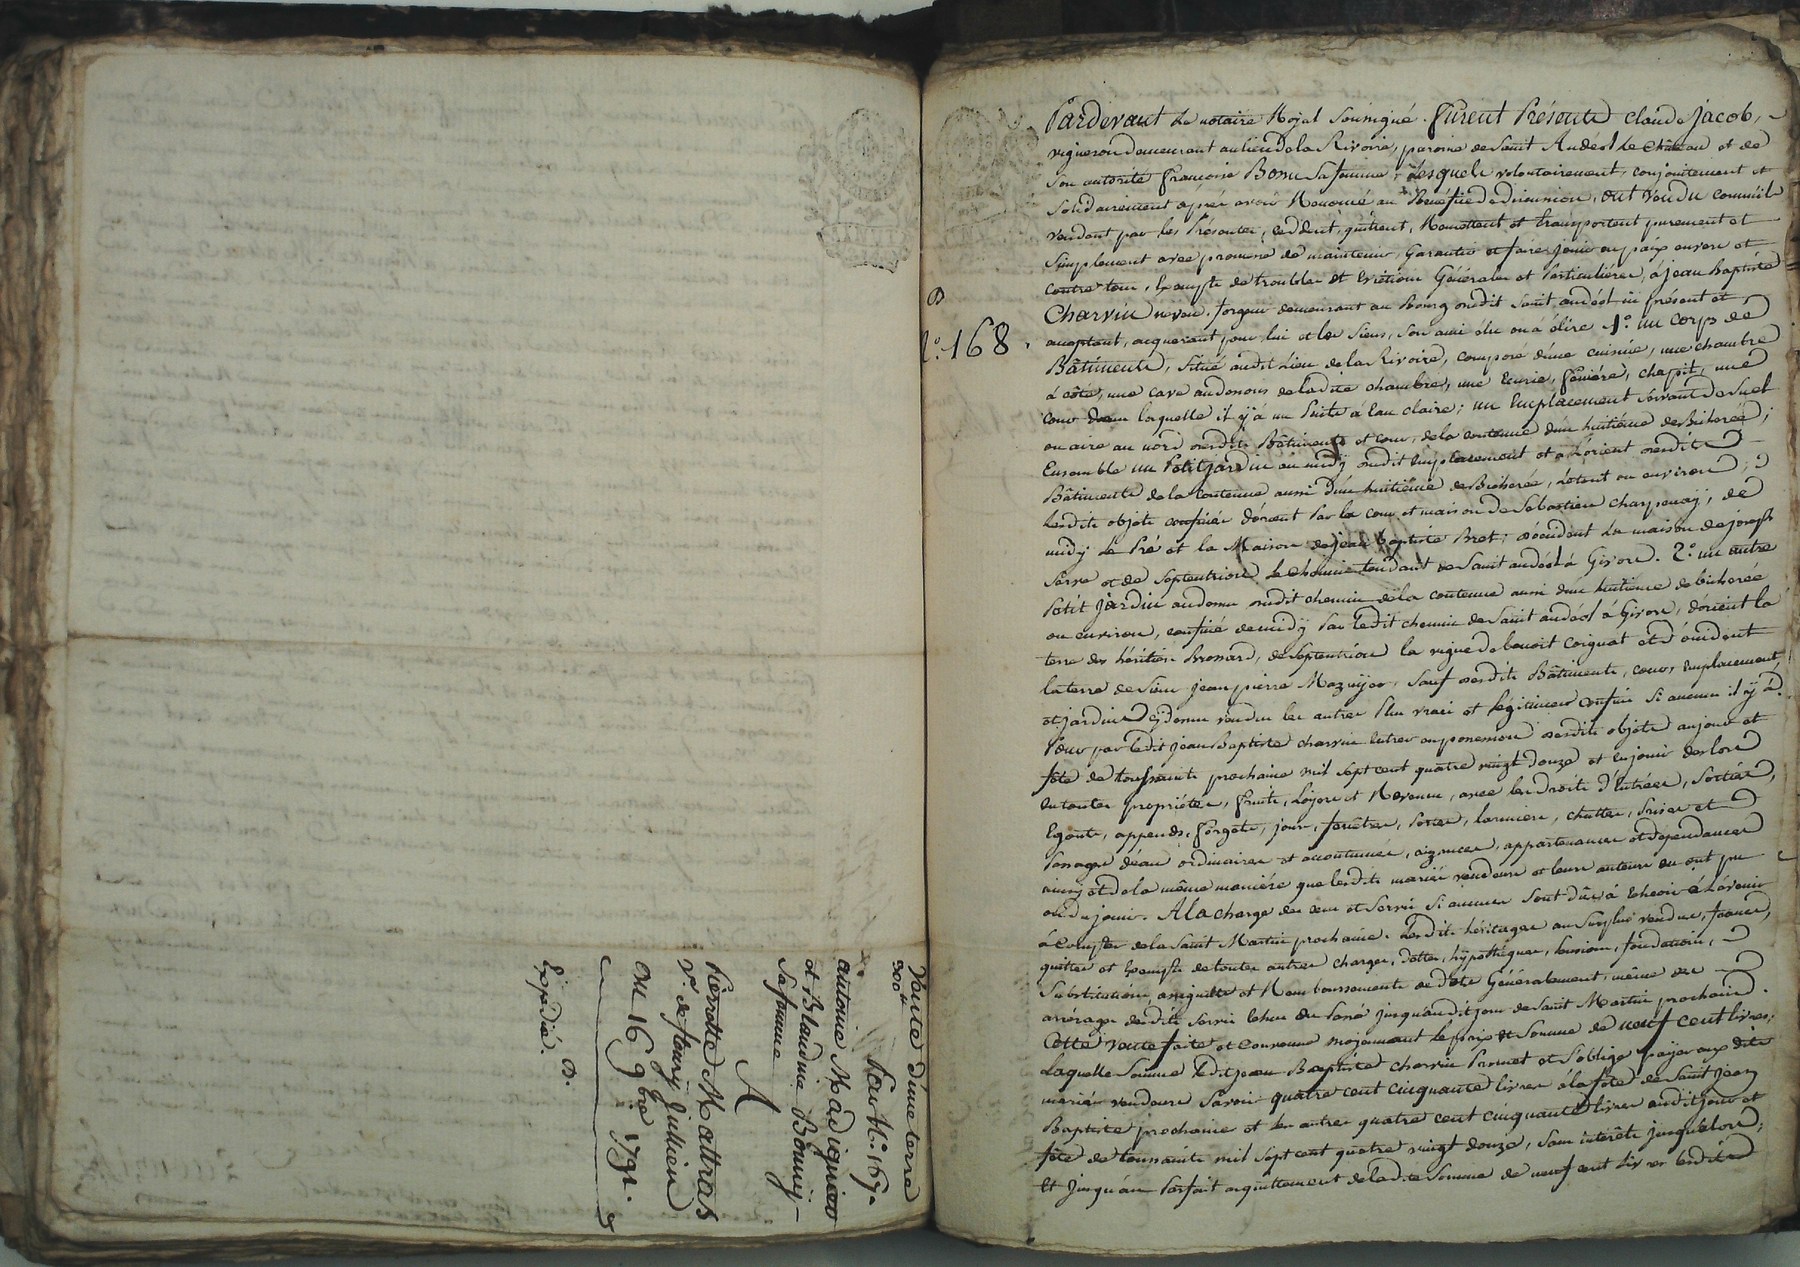 Vente d'une terre
300ᵗᵗ
Par N.º 167e
antoine Madignier
et Blandine Bonnüy
Sa femme
A
Pierrotte Mattras
vᵉ. de fleury Jullien
Du 16 9bre 1791.
Expédié.
B.
B
N.º 168.
Pardevant Le notaire Royal Soussigné. Furent Présents claude Jacob,
vigneron demeurant au lieu de la Rivoire, paroisse de Saint Andéol le Château et de
Son autorité françoise Bonne Sa femme, Lesquels volontairement, conjointement et
Solidairement après avoir Renoncé au Bénéfice de division, ont vendu comm'ils
vendent par les Présentes, cedent, quittent, Remettent et transportent purement et
Simplement avec promesse de maintenir, Garantir et faire jouir en paix envers et
contre tous, Exempts de troubles et Evictions Générales et Particulières, à jean Baptiste
Charvin neveu, forgeur demeurant au Bourg dudit Saint andéol ici présent et
acceptant, acquerant pour lui et les Siens, Son ami élu ou à élire 1.º un corps de
Bâtiments, Situé audit Lieu de la Rivoire, composé d'une cuisine, une chambre
à côté, une cave audessous de ladite chambre, une Ecurie, fénière, chapit, une
cour dans laquelle il y a un Puits à Eau claire; un Emplacement Servant de Suel
ou aire au nord desdits Bâtiments et cour, de la contenue d'un huitième de Bicherée;
Ensemble un Petit Jardin au midy dudit Emplacement et à L'orient desdits
Bâtiments de la Contenue aussi d'un huitième de Bicherée, Letout ou environ;
Lesdits objets confinés d'orient Par la cour et maison de Sébastien charpenay, de
midy Le Pré et la Maison de jean Baptiste Bret; d'occident La maison de joseph
Serre et de Septentrion Le chemin tendant de Saint andéol à Givors. 2.º un autre
Petit Jardin audessus dudit chemin de la contenue aussi d'un huitième de bicherée
ou environ, confiné de midy Par Ledit chemin de Saint andéol à Givors, d'orient la
terre des héritiers Brossard, de Septentrion la vigne de benoit Coignat et d'occident
la terre de Sieur jean pierre Mazuyer, Sauf desdits Bâtiments, cour, emplacement
et jardins cydessus vendus les autres Plus vrais et Légitimes Confins Si aucuns il y a.
Pour par Ledit Jean Baptiste charvin Entrer en possession desdits objets au jour et
fête de toussaints prochaine mil Sept cent quatre vingt douze et En jouir dèslors
En toutes propriétés, fruits, Loyers et Revenus, avec les droits d'Entrées, Sorties,
Egouts, appends, forgets, jours, fenêtres, Portes, larmiers, chuttes, Prises et
Passages d'eau ordinaires et accoutumés, aizances, appartenances et dépendances
ainsy et de la même manière que lesdits mariés vendeurs et leurs auteurs en ont pu
ou du jouir. A la charge des cens et Servis Si aucuns Sont dûs à échoir à L'avenir
à Compter de la Saint Martin prochaine. Lesdits héritages au Surplus vendus, francs,
quittes et Exempts de toutes autres charges, dettes, hypothèques, pensions, fondations,
Substitutions, anquette et Remboursements de dots Généralement, même des
arrérages desdits Servis Echus du Passé jusqu'audit jour de Saint Martin prochaine.
Cette vente faite et convenue moyennant le prix et Somme de neuf cent livres;
Laquelle Somme Ledit jean Baptiste charvin Promet et S'oblige payer aux dits
mariés vendeurs Savoir quatre cent cinquante livres à la fête de Saint Jean
Baptiste prochaine et les autres quatre cent cinquante livres audit jour et
fête de toussaints mil Sept cent quatre vingt douze, Sans intérêts jusqu'alors;
Et jusqu'au Parfait acquittement de ladite Somme de neuf cent livres lesdits